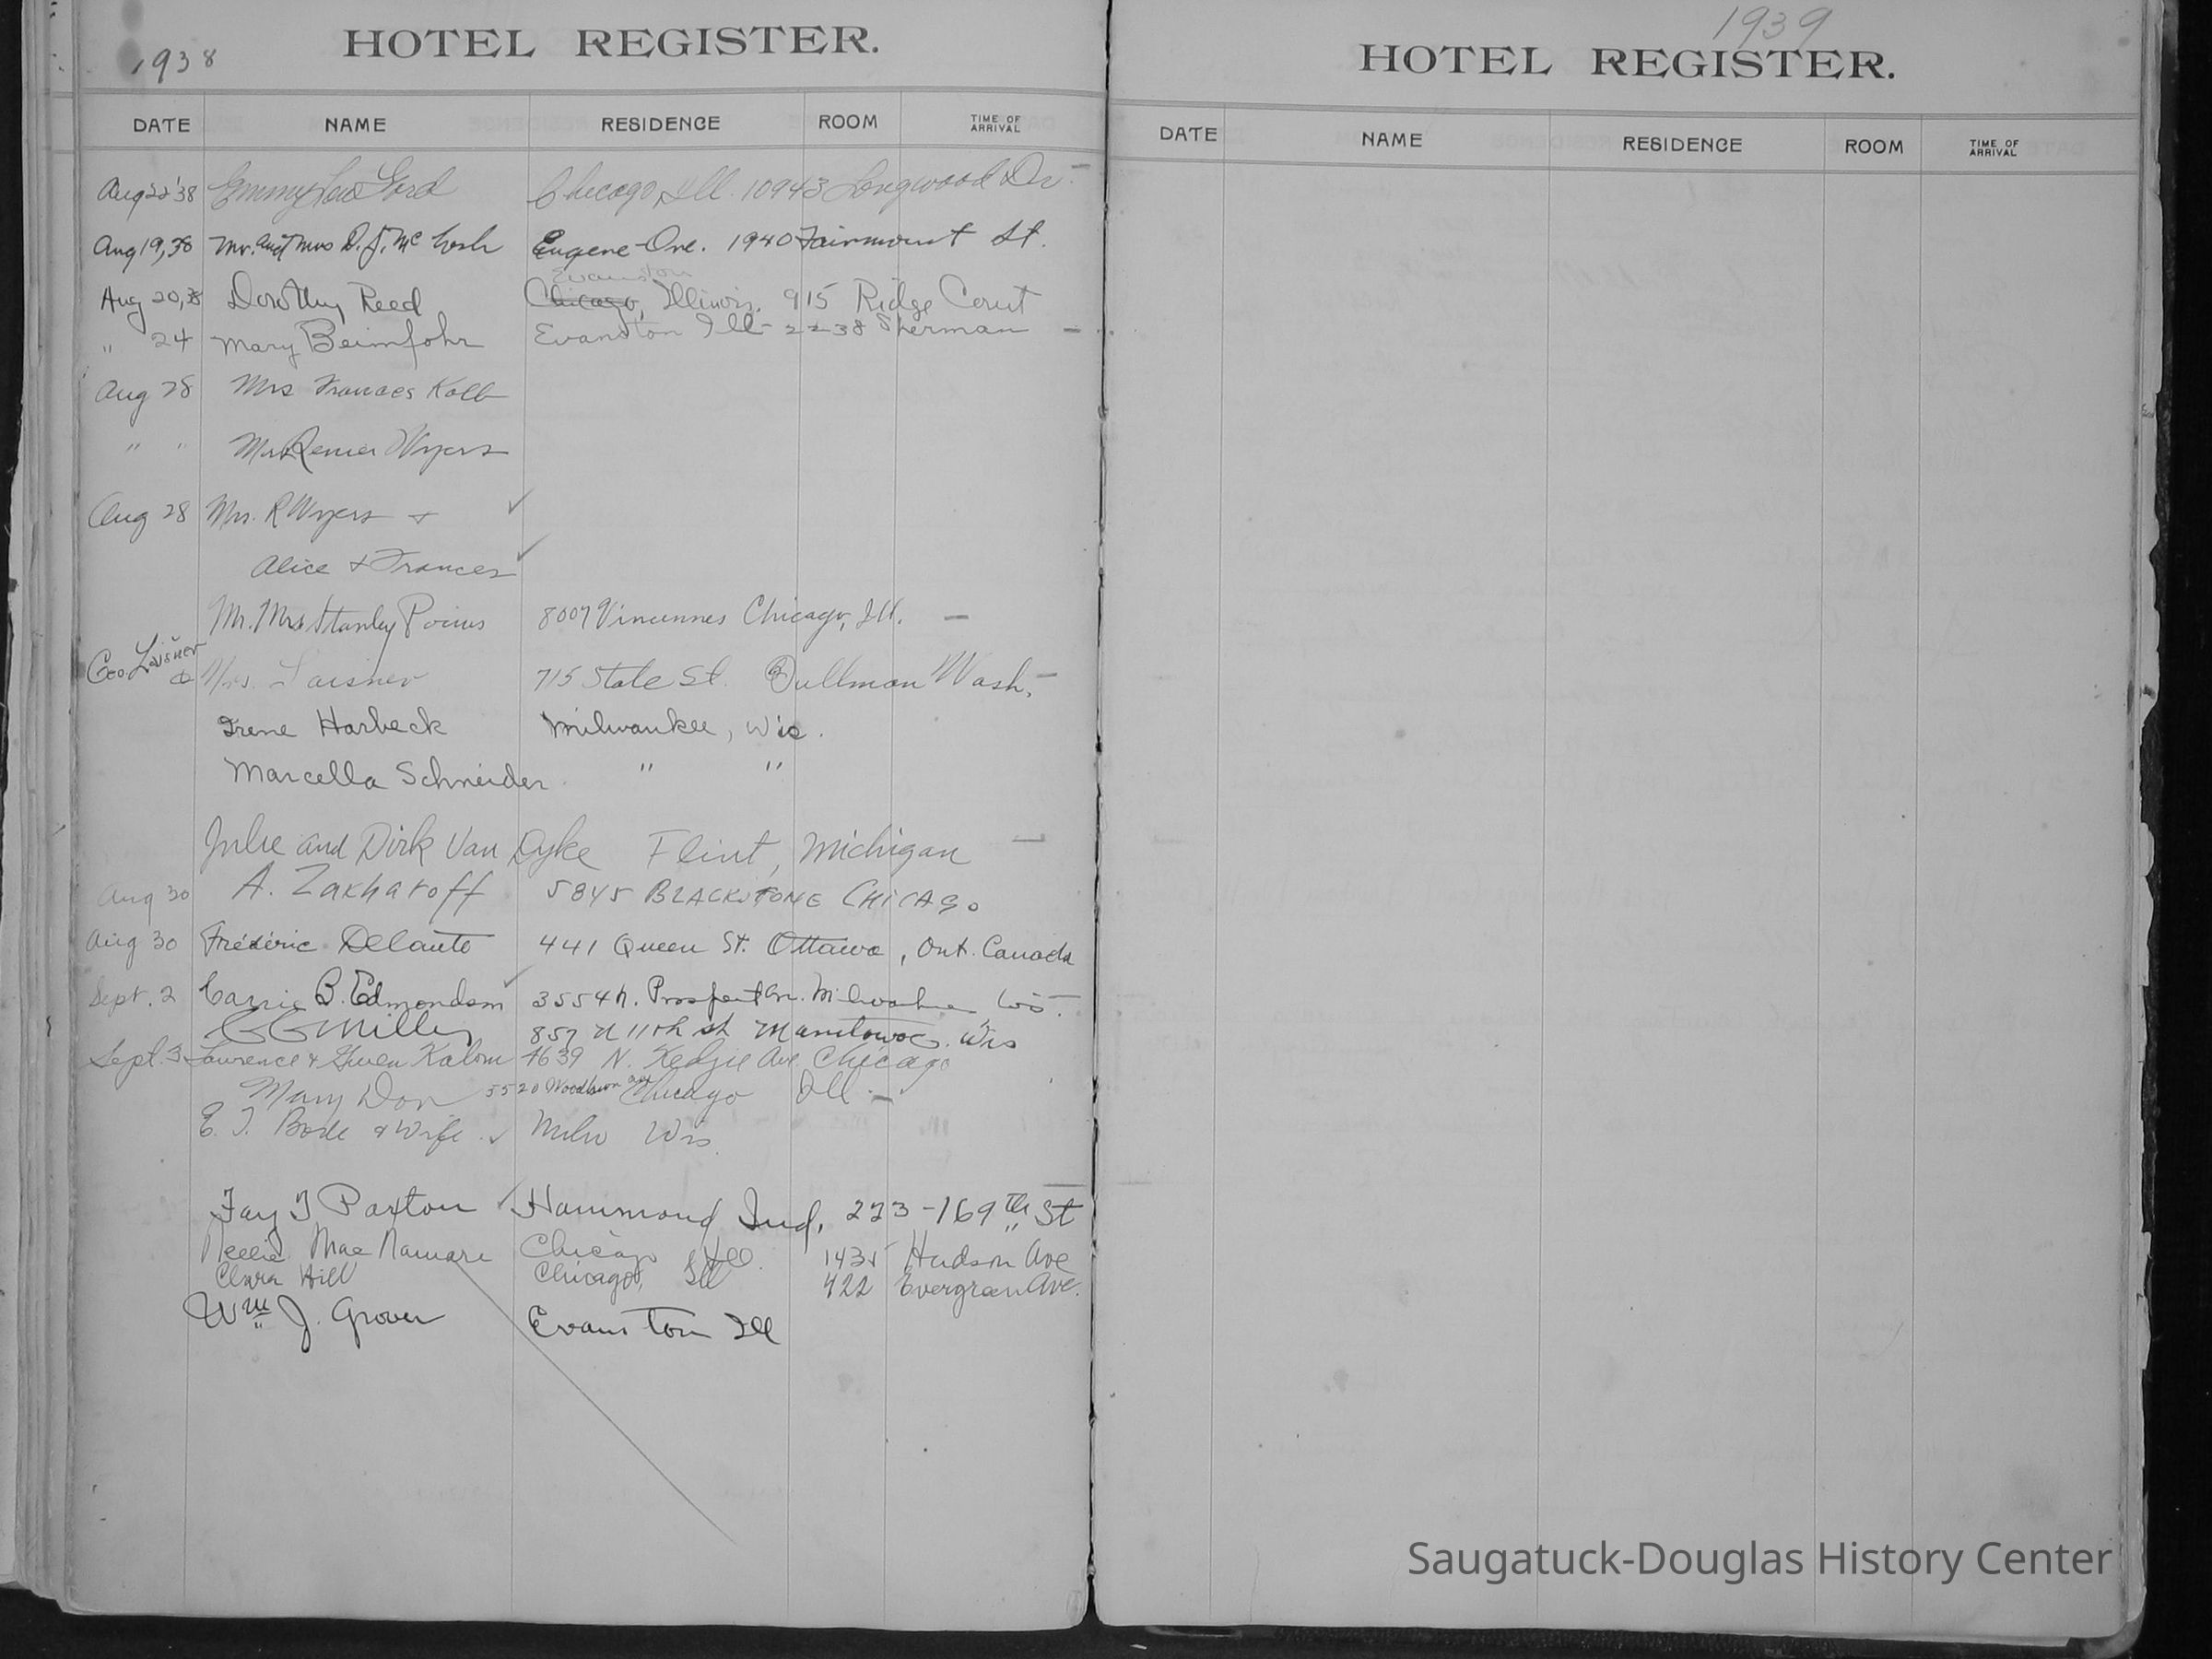 1938
HOTEL REGISTER.
DATE NAME RESIDENCE ROOM TIME OF ARRIVAL
Aug 22 '38 Emmy Lou Ford Chicago, Ill. 10943 Longwood Dr. -
Aug 19, 38 Mr. and Mrs D. J. Mc Cosh Eugene Ore. 1940 Fairmount St.
Evanston
Aug 20, 38 Dorothy Reed Chicago, Illinois. 915 Ridge Court
" 24 Mary Beimfohr Evanston Ill - 2238 Sherman -
Aug 28 Mrs Frances Kolb
" " Mrs Renier Wyers
Aug 28 Mrs. R Wyers + ✓
Alice + Frances ✓
Mr. Mrs Stanley 8007 Vincennes Chicago, Ill. -
Geo. Laisner
& Mrs. Laisner 715 State St. Pullman Wash. -
Irene Harbeck Milwaukee, Wis.
Marcella Schneider " "
Julie and Dirk Van Dyke Flint, Michigan -
Aug 30 A. Zakharoff 5845 BLACKSTONE CHICAGO
Aug 30 Frédéric 441 Queen St. Ottawa, Ont. Canada
Sept. 2 Carrie B. Edmondson ✓ 3554 N. Prospect Av. Milwaukee, Wis. -
G G Miller 857 N 11th st Manitowoc. Wis
Sept. 3 Lawrence & Gwen Kalom 4639 N. Kedzie Ave Chicago
Mary Don 5520 Woodlawn ave Chicago Ill -
E. J. Bode & Wife ✓ Milw Wis.
Fay J Paxton ✓ Hammond Ind. 223 - 169th St
Nellie Mae Chicago Ill. 1435 Hudson Ave
Clara Hill Chicago, Ill 422 Evergreen Ave.
Wm J. Grover Evanston Ill
1939
HOTEL REGISTER.
DATE NAME RESIDENCE ROOM TIME OF ARRIVAL
Saugatuck-Douglas History Center